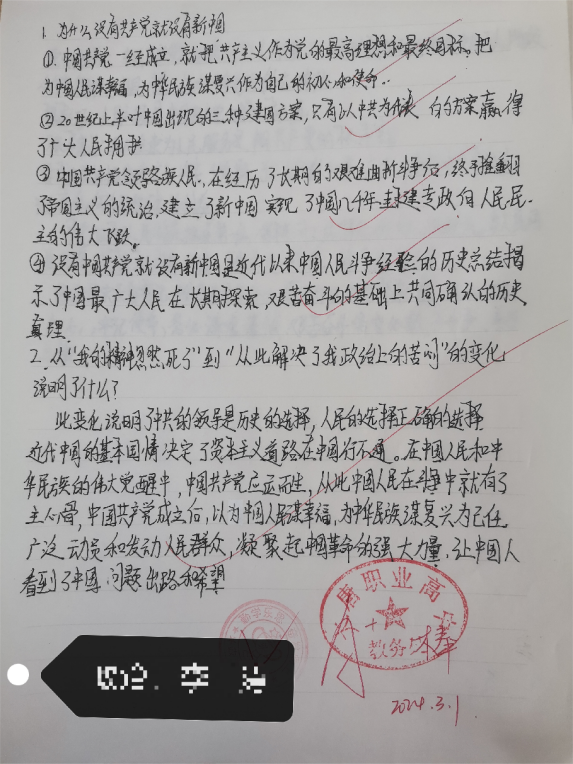 1. 为什么没有共产党就没有新中国
①. 中国共产党一经成立，就把共产主义作为党的最高理想和最终目标。把
为中国人民谋幸福，为中华民族谋复兴作为自己的初心和使命。
②20世纪上半叶中国出现的三种建国方案，只有以中共为代表的方案赢得
了广大人民拥护
③ 中国共产党领导各族人民，在经历了长期的艰难曲折斗争后，终于推翻
了帝国主义的统治，建立了新中国实现了中国几千年封建专政向人民民
主的伟大飞跃。
④ 没有中国共产党就没有新中国是近代以来中国人民斗争经验的历史总结揭
示了中国最广大人民在长期探索，艰苦奋斗的基础上共同确认的历史
真理
2. 从“我的精神忽然死了”到“从此解决了我政治上的苦闷”的变化
说明了什么？
此变化说明了中共的领导是历史的选择，人民的选择正确的选择
近代中国的基本国情决定了资本主义道路在中国行不通。在中国人民和中
华民族的伟大觉醒中，中国共产党应运而生，从此中国人民在斗争中就有了
主心骨，中国共产党成立后，以为中国人民谋幸福，为中华民族谋复兴为己任
广泛动员和发动人民群众，凝聚起中国革命的强大力量，让中国人
看到了中国问题出路和希望
职业高
教务
2024.3.1